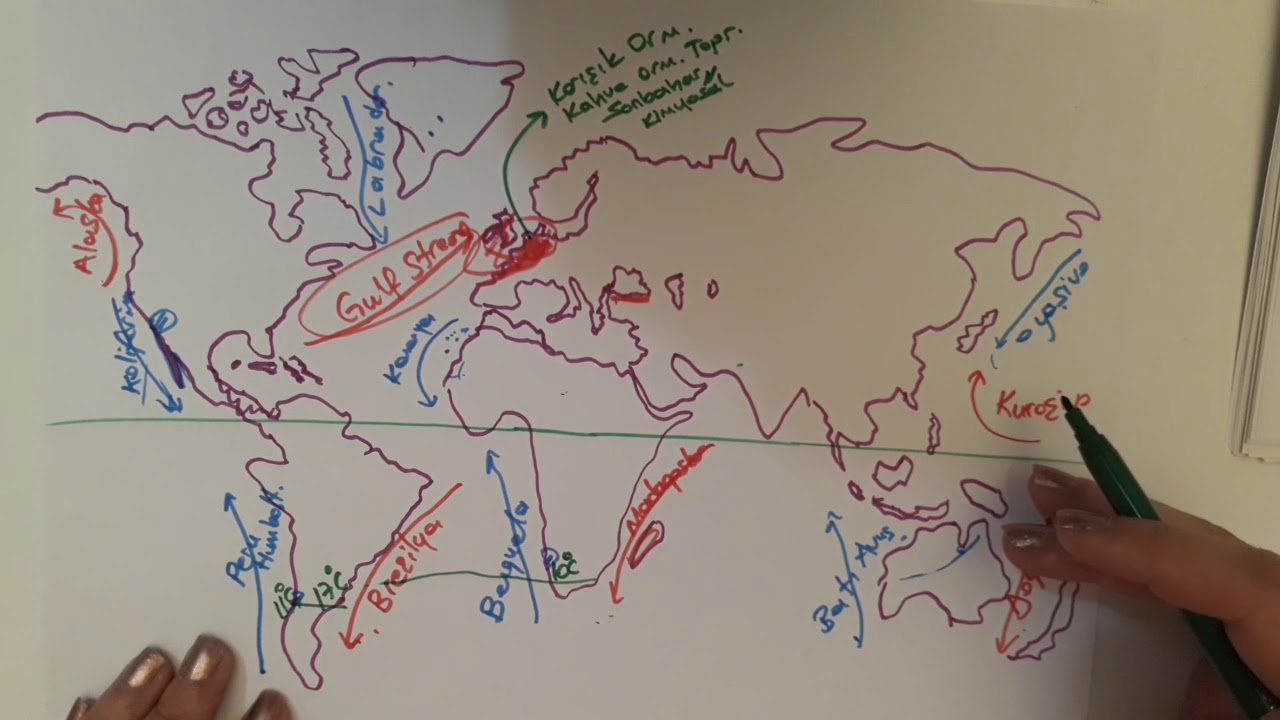 Karışık Orm.
Kahve Orm. Topr.
Sonbahar
Kimyasal
Labrador.
Alaska
Gulf Stream
Oyaşivo
Kanarya
Kaliforn
Kuroşivo
Madagaskar
Peru
Humbolt.
Brezilya
Benguela
Batı Avus.
11°C
17°C